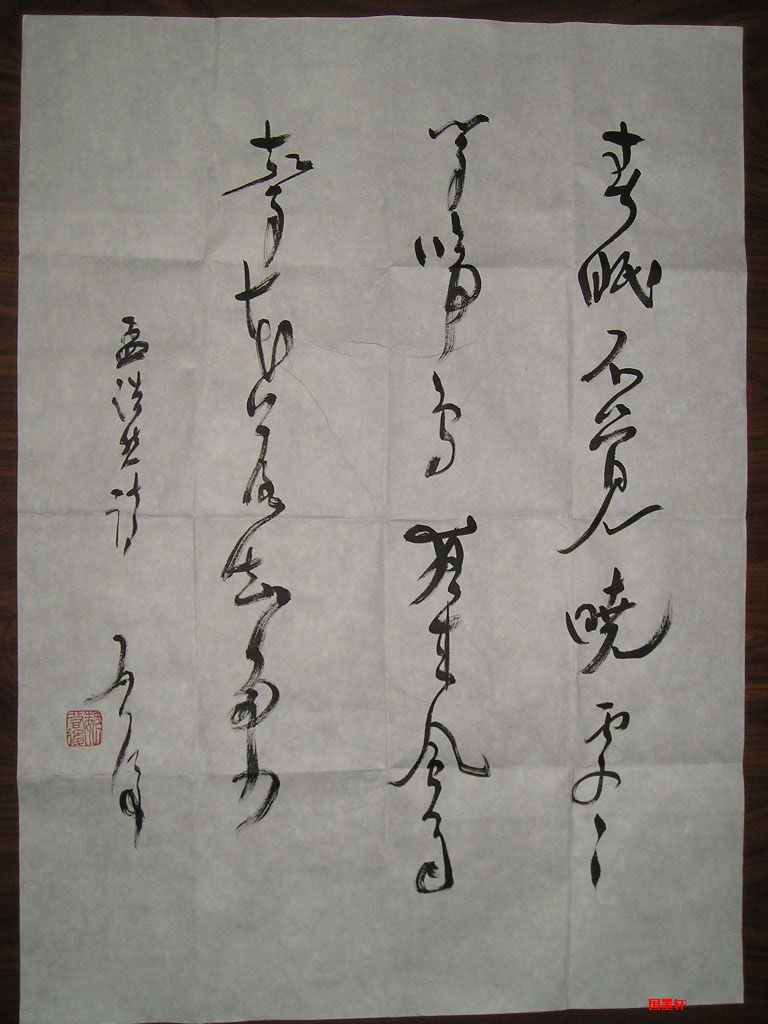 春眠不覺曉處々
聞啼鳥夜来風雨
聲花落知多少
孟浩然詩
国墨轩